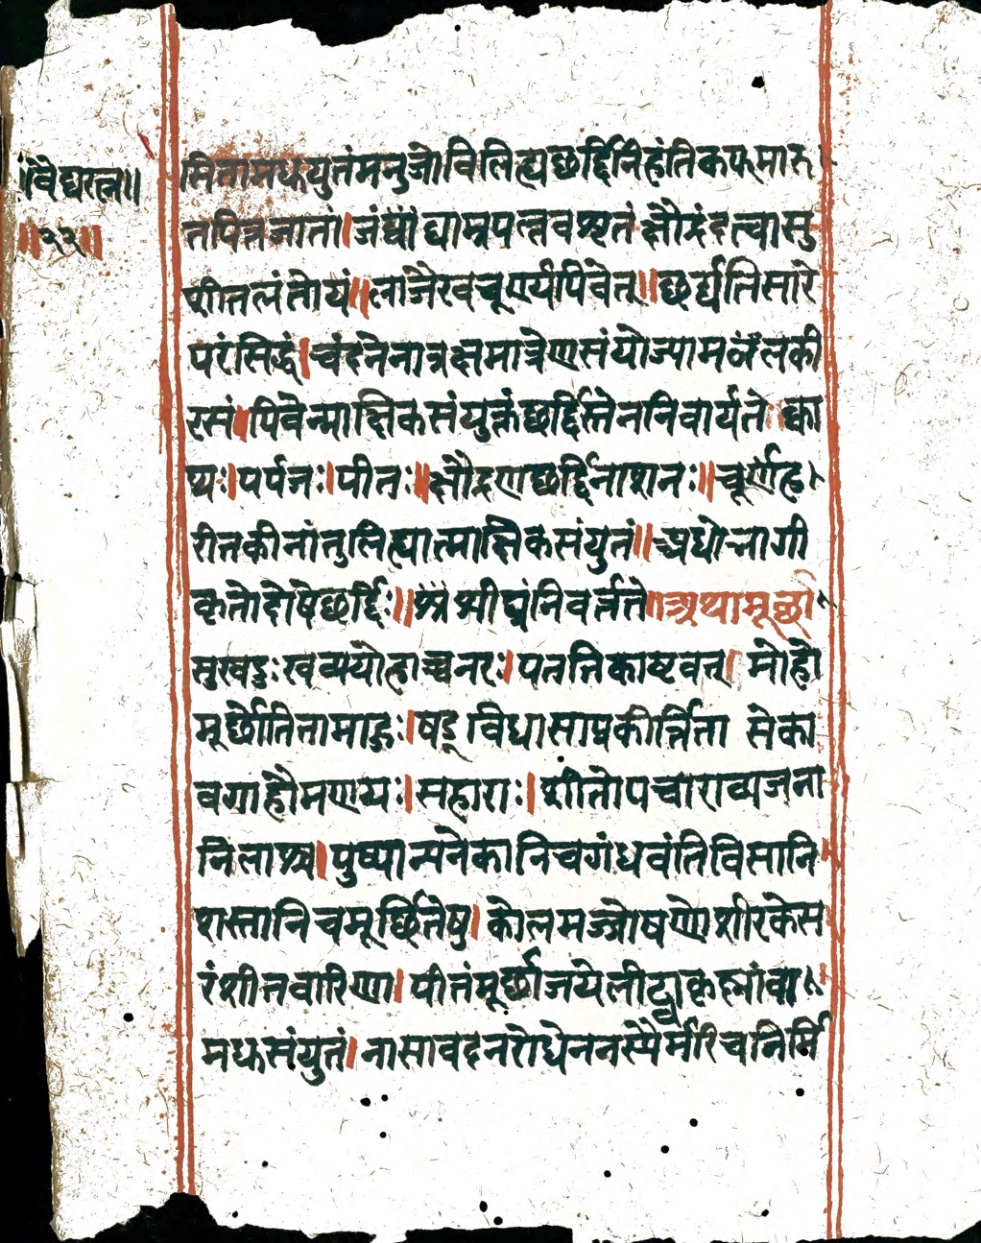 ॥वैद्यरत्न॥
॥१२॥
सितामधुयुतंमनुजोविलिह्यछर्द्दिनिहंतिकफमारु
तपित्तजातां।जंब्वांद्याम्रपल्लवश्रृतंक्षौद्रंदत्वासु
शीतलंतोयं॥लाजैरवचूर्ण्यपिवेत्॥छर्द्यतिसारे
परंसिद्धं।चंदनेनाक्षमात्रेणसंयोज्यामलकी
रसं॥पिवेन्माक्षिकसंयुक्तंछर्द्दिस्तेननिवार्यते॥क्वा
थः।पर्पजः।पीतः॥क्षौद्रेणछर्द्दिनाशनः॥चूर्णंह
रीतकीनांतुलिह्यात्माक्षिकसंयुतं॥अधोभागी
कृतेदोषेछर्द्दिः॥शीघ्रंनिवर्त्तते॥अथमूर्छा
सुखदुःखव्यपोहाच्चनरः।पततिकाष्टवत्।मोहो
मूर्छेतितामाहुः।षड्विधासाप्रकीर्त्तिता सेका
वगाहौमणयः।सहाराः।शीतोपचाराव्यजना
निलाश्च।पुष्पान्यनेकानिचगंधवंतिविसानि
शस्तानिचमूर्छितेषु।कोलमज्जोषणोशीरकेस
रंशीतवारिणा।पीतंमूर्छाजयेलीढ्वाकृष्णांवा
मधुसंयुतं।नासावदनरोधेननस्यैर्मरिचनिर्मि